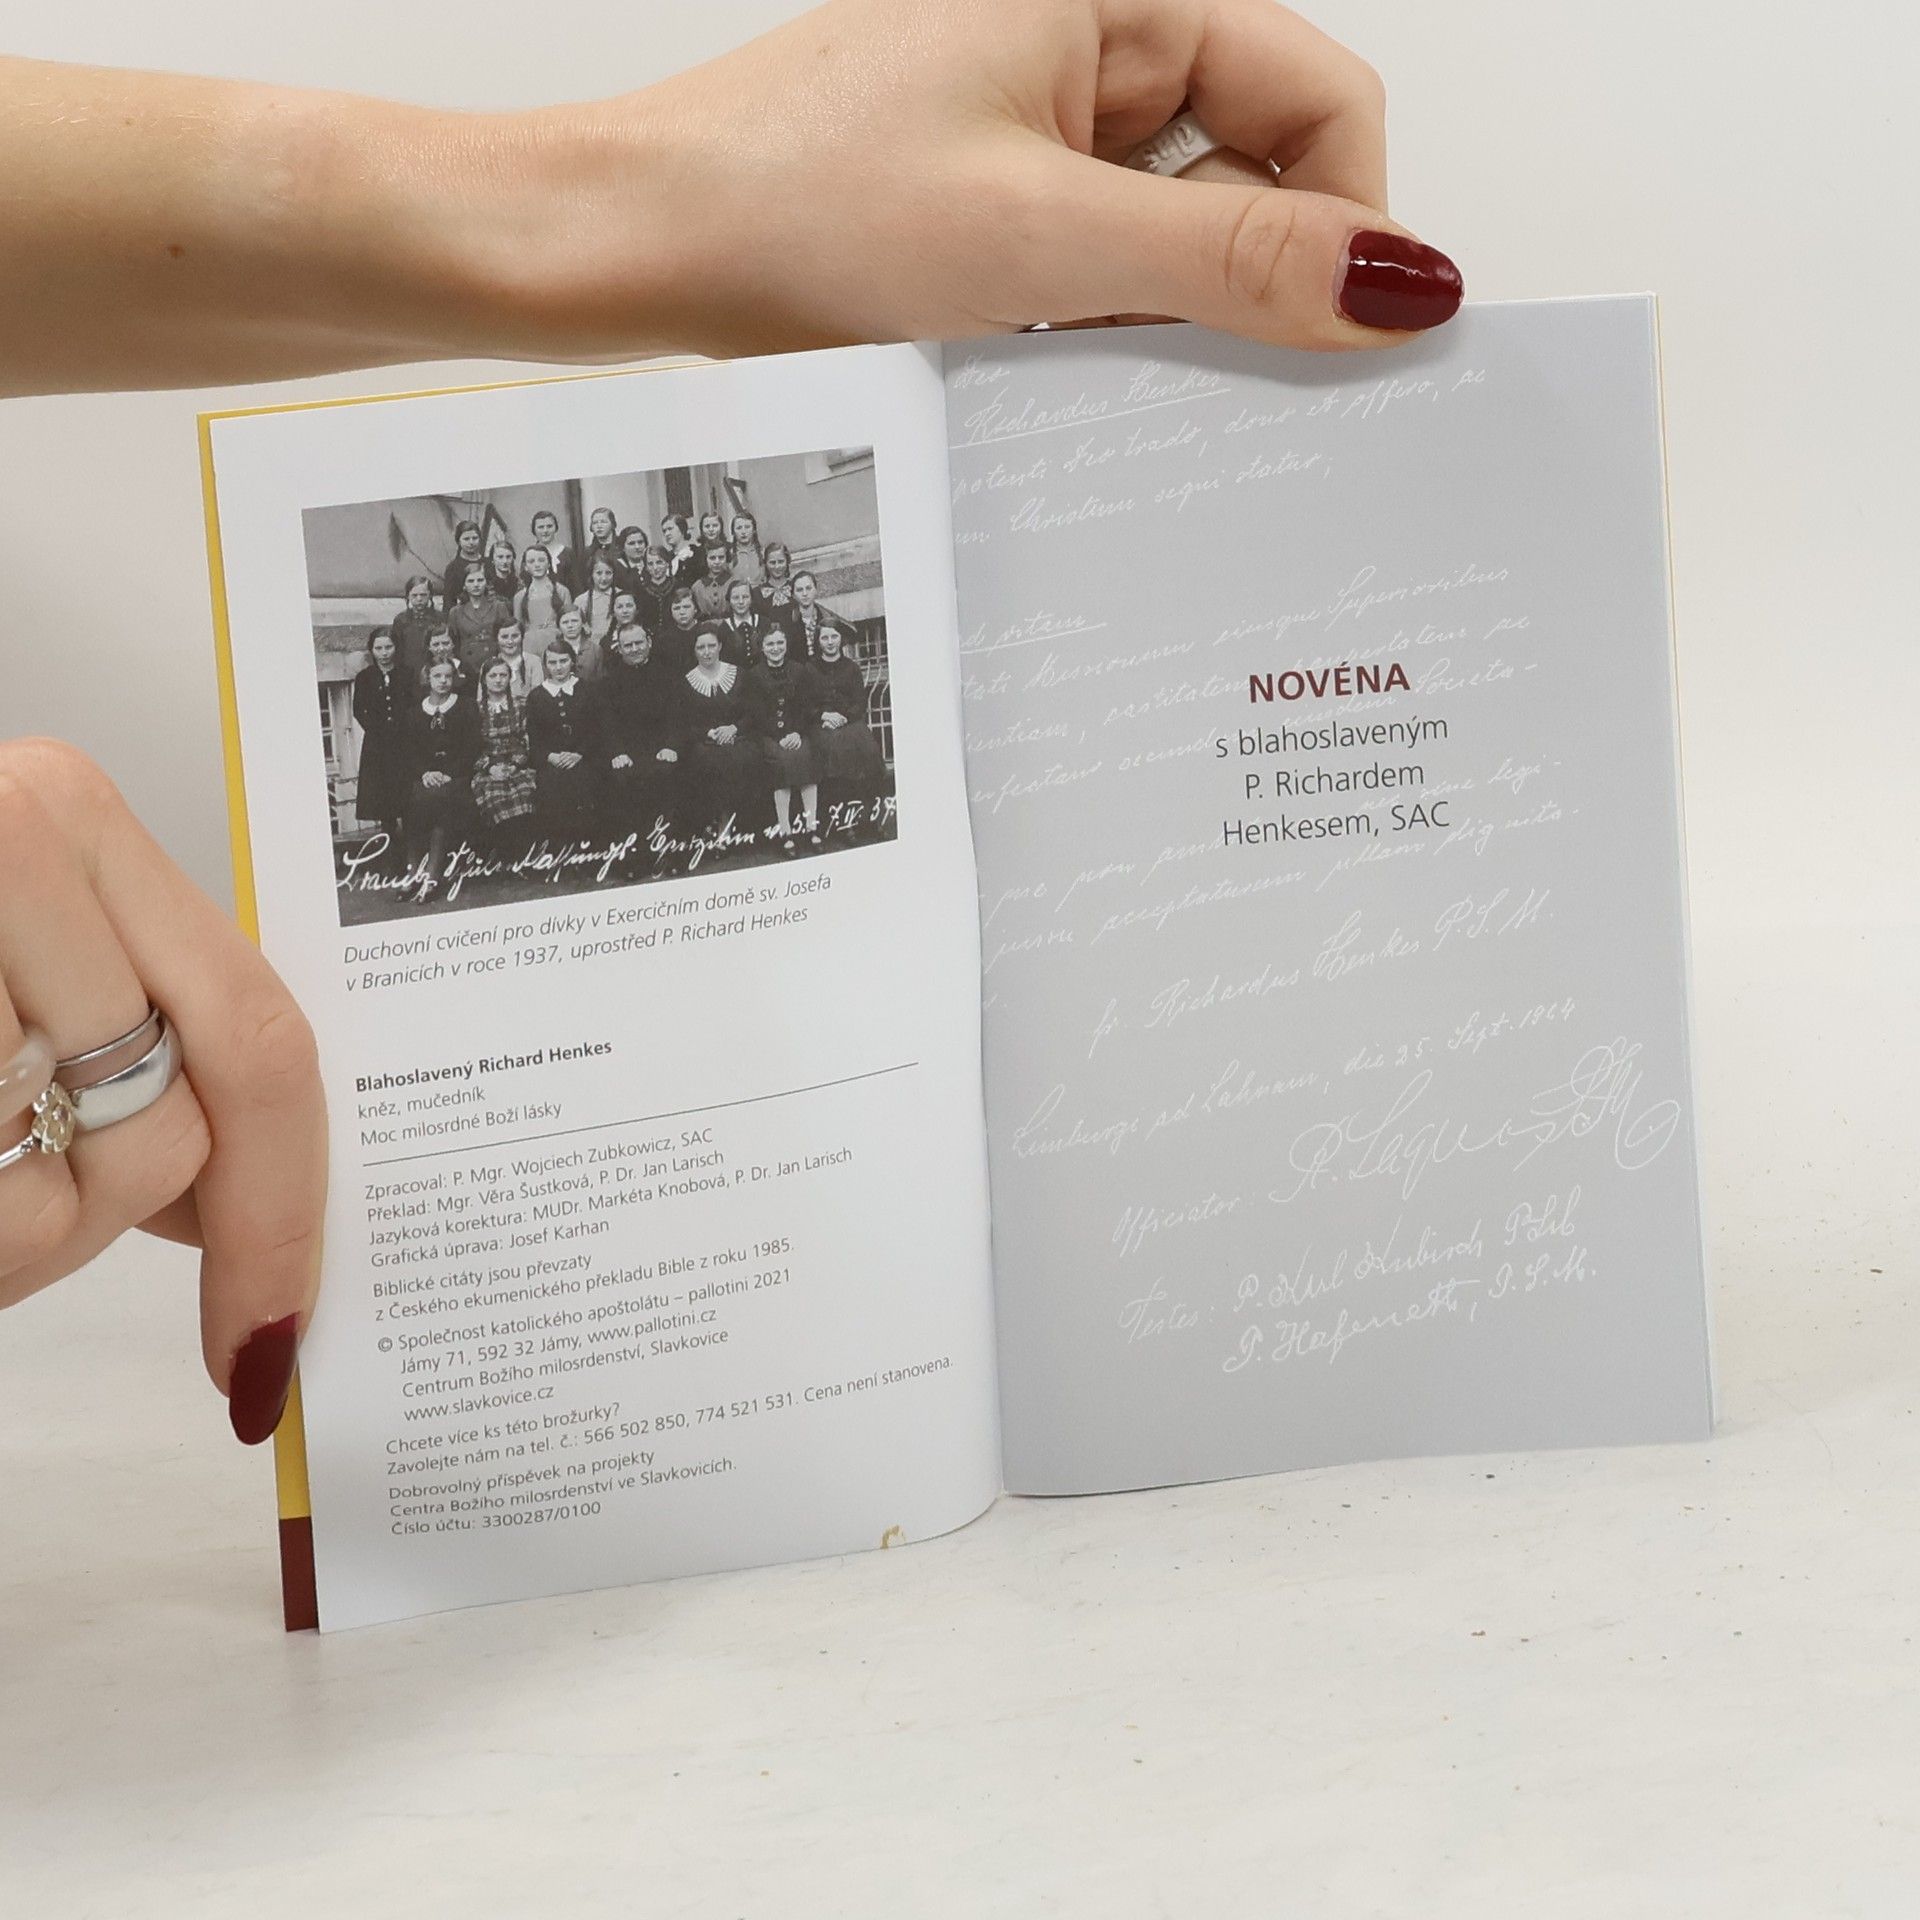 sup
7. IV. 37.
Duchovní cvičení pro dívky v Exercičním domě sv. Josefa
v Branicích v roce 1937, uprostřed P. Richard Henkes
Blahoslavený Richard Henkes
kněz, mučedník
Moc milosrdné Boží lásky
Zpracoval: P. Mgr. Wojciech Zubkowicz, SAC
Překlad: Mgr. Věra Šustková, P. Dr. Jan Larisch
Jazyková korektura: MUDr. Markéta Knobová, P. Dr. Jan Larisch
Grafická úprava: Josef Karhan
Biblické citáty jsou převzaty
z Českého ekumenického překladu Bible z roku 1985.
© Společnost katolického apoštolátu – pallotini 2021
Jámy 71, 592 32 Jámy, www.pallotini.cz
Centrum Božího milosrdenství, Slavkovice
www.slavkovice.cz
Chcete více ks této brožurky?
Zavolejte nám na tel. č.: 566 502 850, 774 521 531. Cena není stanovena.
Dobrovolný příspěvek na projekty
Centra Božího milosrdenství ve Slavkovicích.
Číslo účtu: 3300287/0100
Richardus Henkes
Deo trado, dono et offero, ac
Christum sequi statuo;
Missionum eiusque Superioribus
NOVÉNA
s blahoslaveným
P. Richardem
Henkesem, SAC
fr. Richardus Henkes P.S.M.
Limburgi ad Lahnam, die 25. Sept.
Officiator:
Testes: P.
P.S.M.